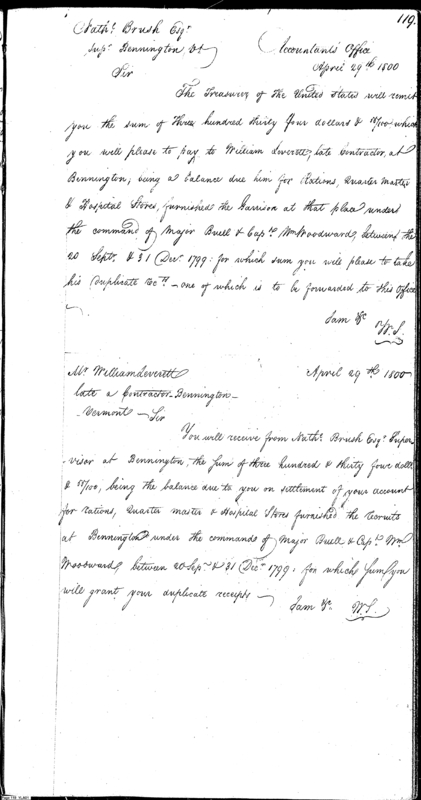 119.
Nath¹ Brush Esqr
Supr Bennington Vt
Accountants Office
April 29th 1800
Sir
The Treasurer of the United States will remit
you the sum of three hundred thirty four dollars & /100 which
you will please to pay to William Leverett, late Contractor, at
Bennington; being a balance due him for Rations, Quarter Master
& Hospital Stores, furnished the Garrison at that place under
the command of Major Buell & Capt. Wm Woodward, between the
20 Sept. & 31 Decr 1799: for which sum you will please to take
his duplicate — one of which is to be forwarded to this Office
I am &c
W.S.
Mr William Leverett
April 29th 1800
late a Contractor Bennington
Vermont — Sir
You will receive from Nath¹ Brush Esqr Super
visor at Bennington, the sum of three hundred & thirty four doll
& /100, being the balance due to you on settlement of your account
for rations, Quarter master & Hospital Stores furnished the recruits
at Bennington under the commands of Major Buell & Capt. Wm
Woodward, between 20 Sepr & 31 Decr 1799: for which sum you
will grant your duplicate receipts —
I am &c. W.S.